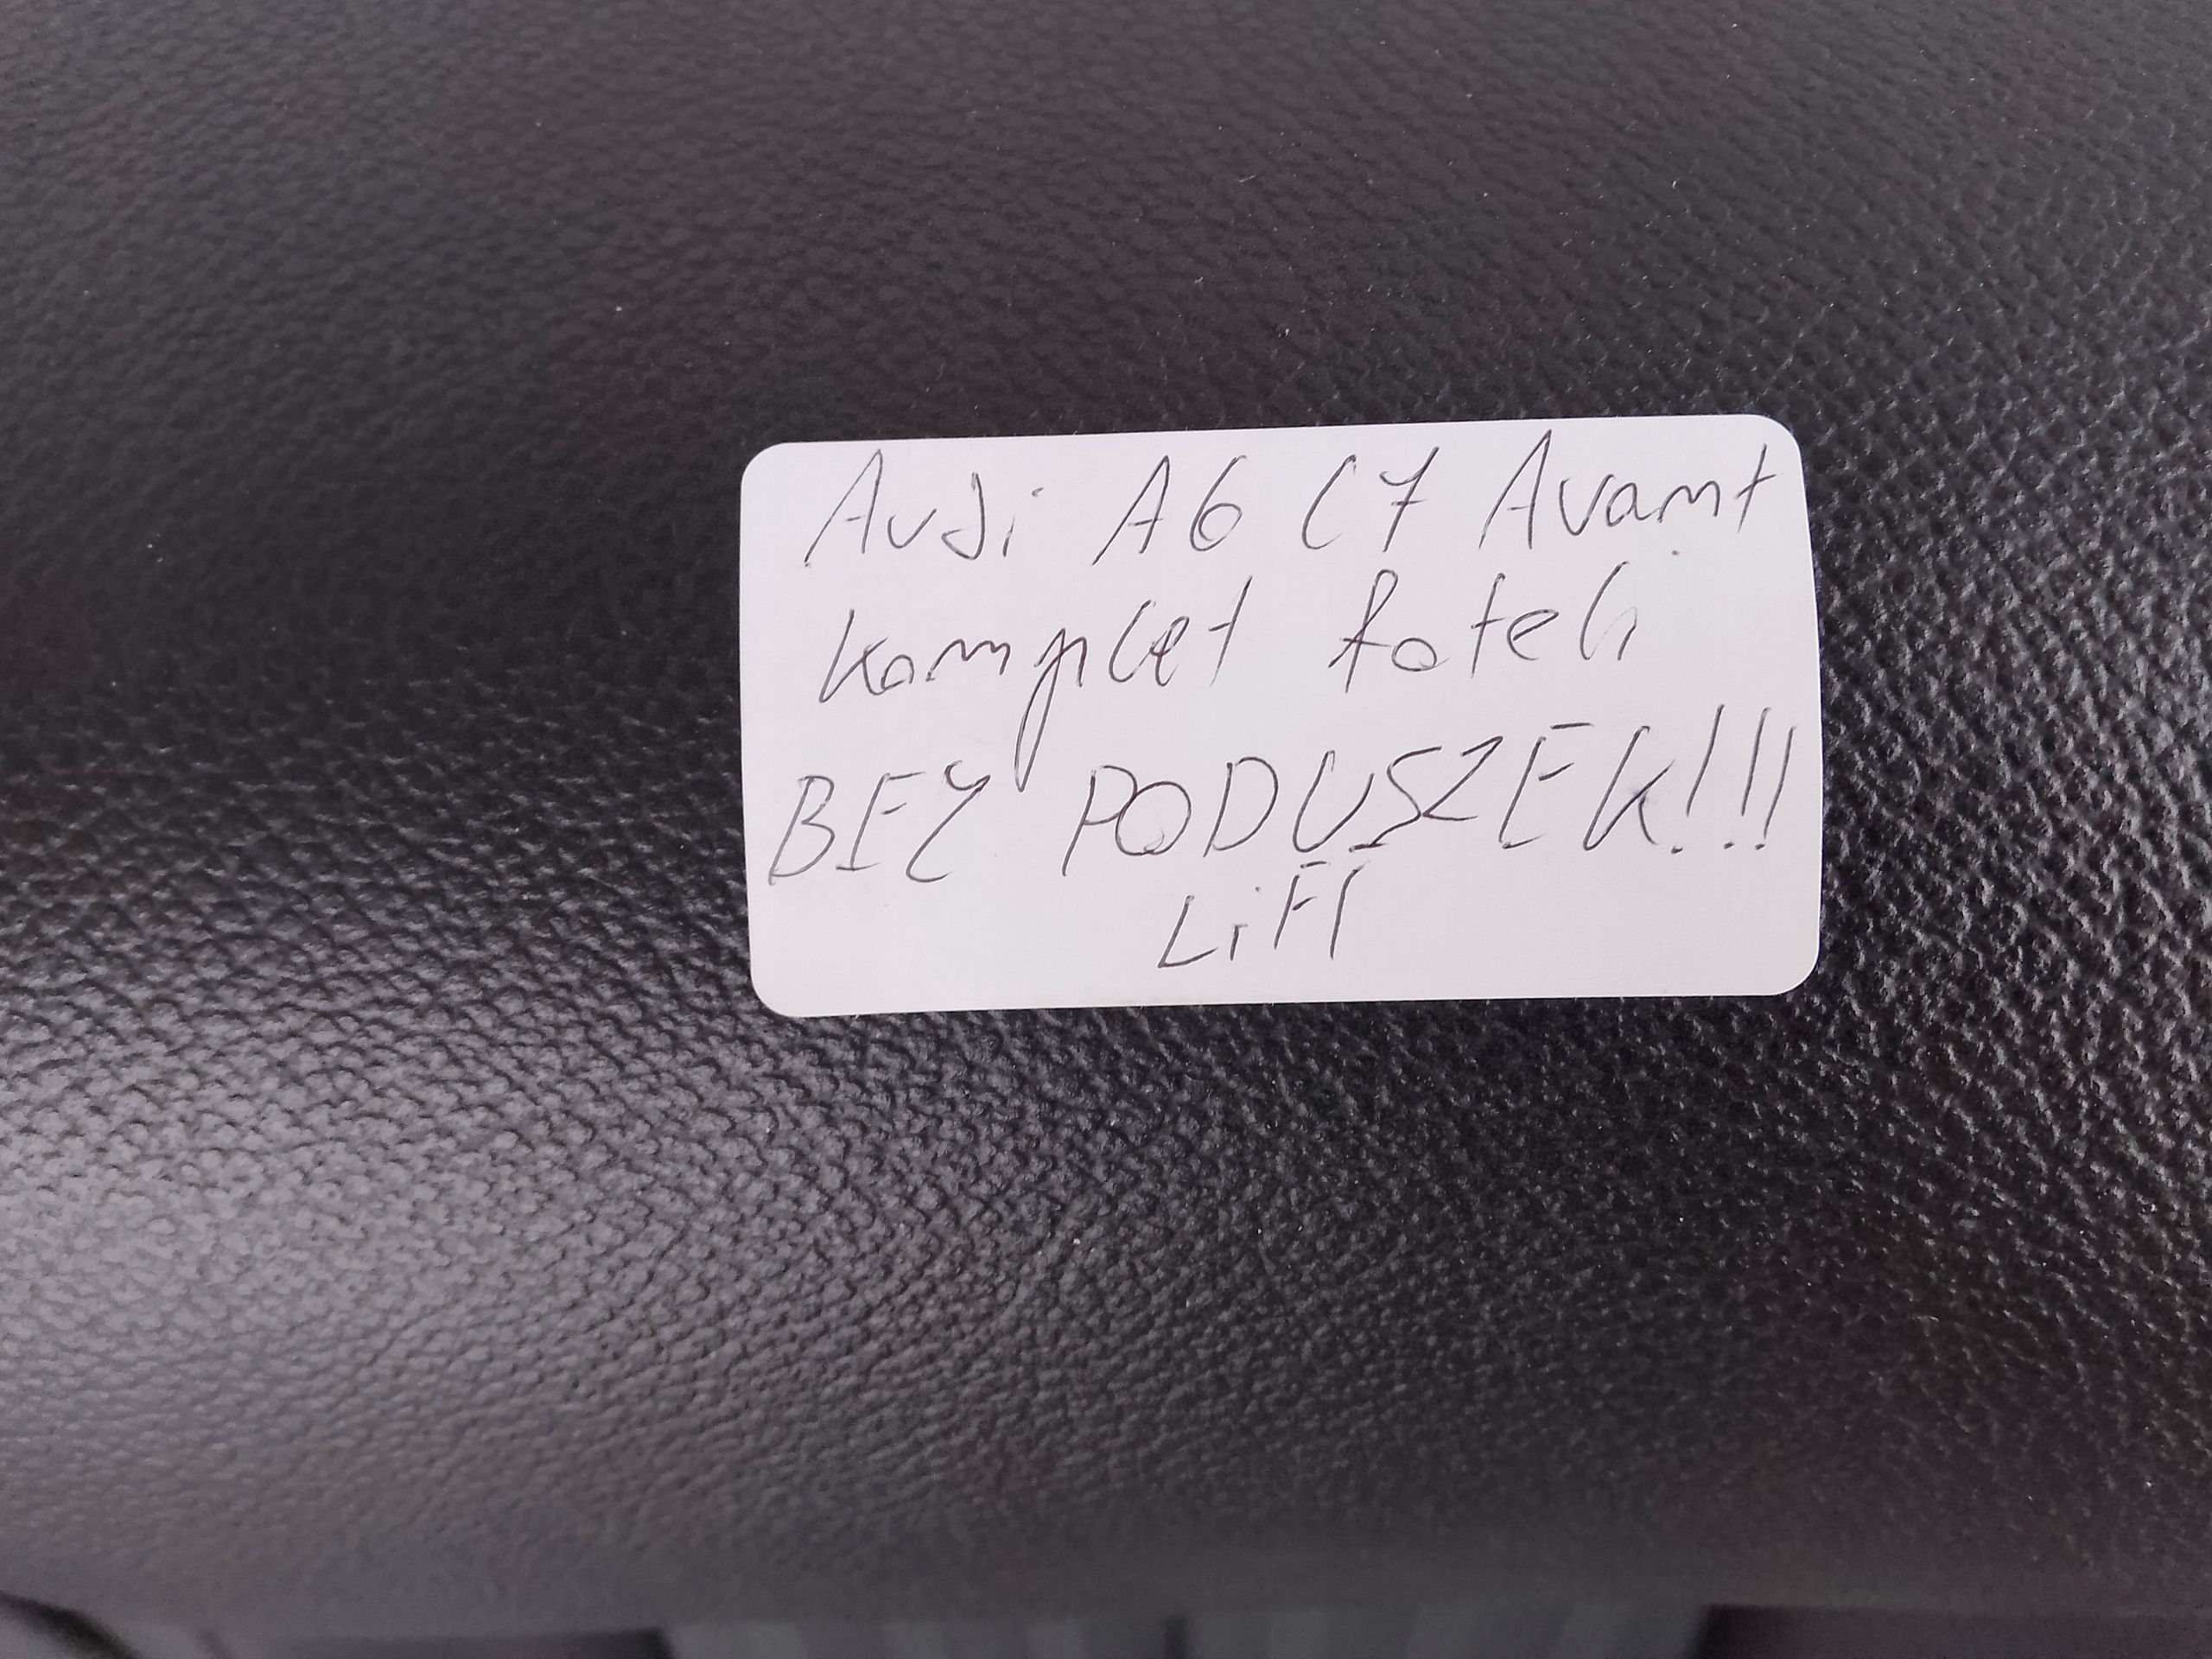 Audi A6 C7 Avant
komplet foteli
BEZ PODUSZEK!!!
LiFT